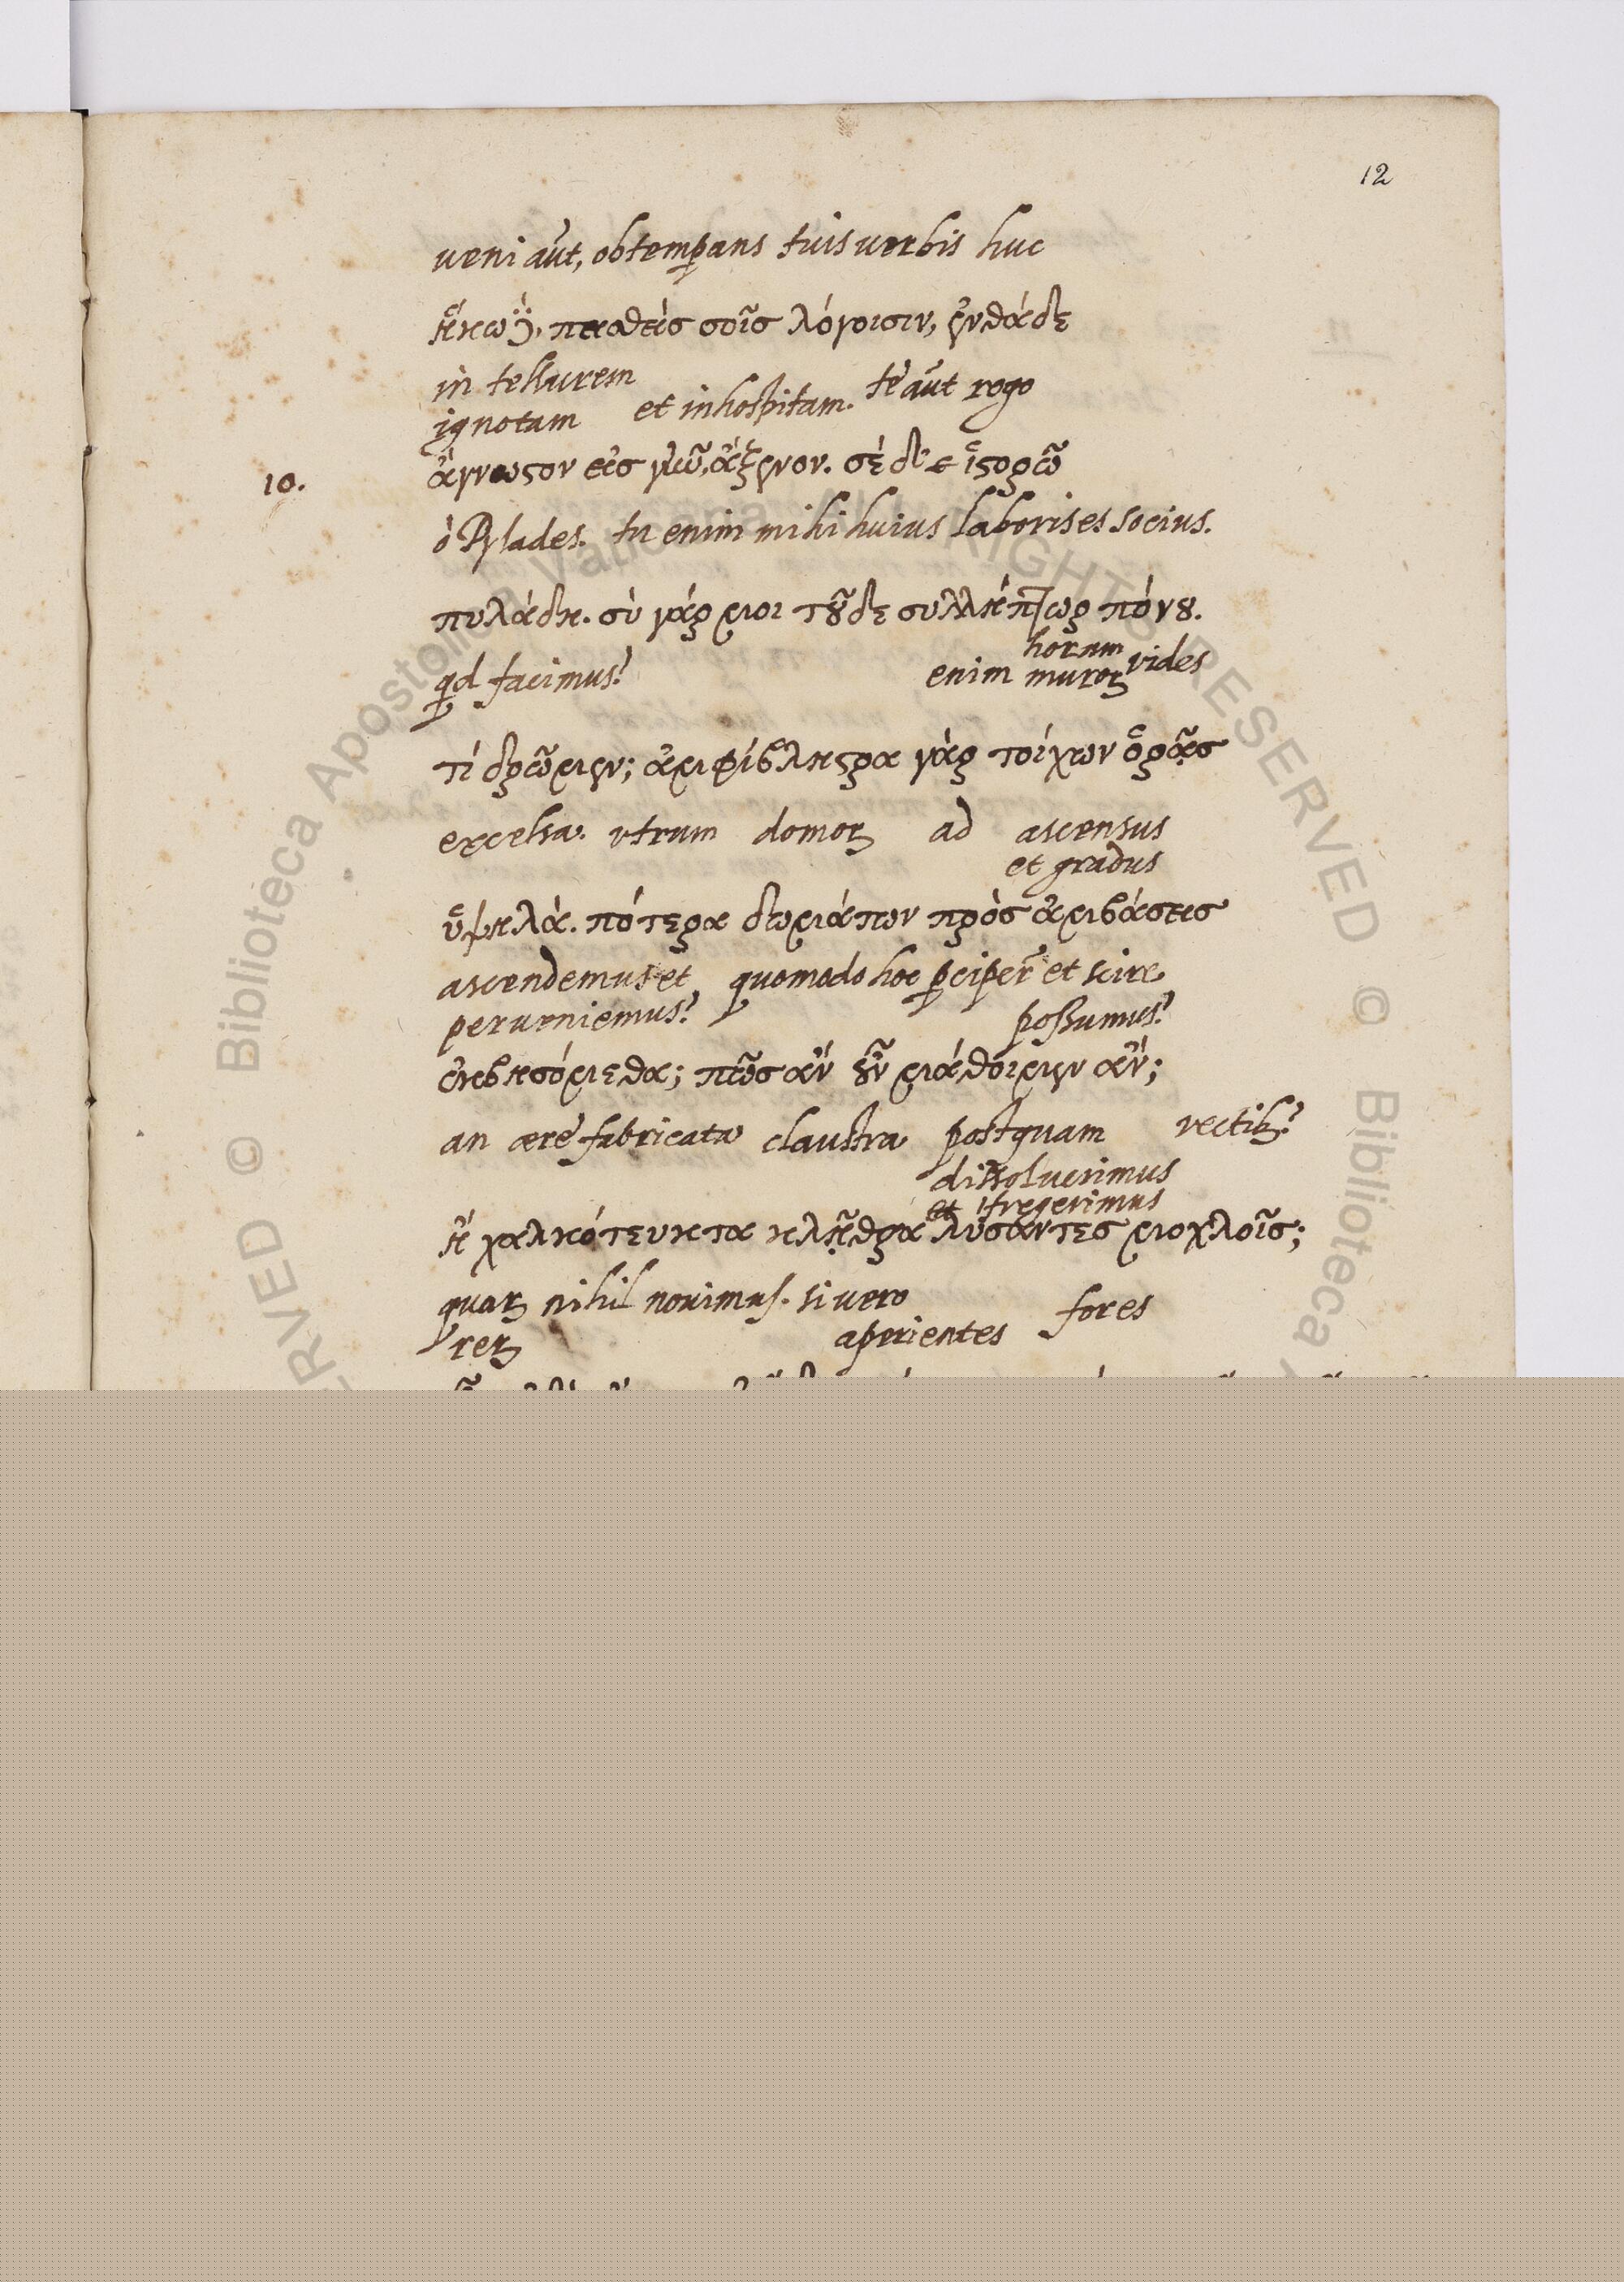 12
veni aut, obtemperans tuis verbis huc
ἥκω δὲ, πεισθεὶσ σοῖσ λόγοισιν, ἐνθάδε
in tellurem
ignotam et inhospitam. te aut rogo
10.
ἄγνωστον εἰσ γῆν, ἄξενον. σὲ δ' ἱστορῶ
ὁ Pylades. tu enim mihi huius laboris es socius.
πυλάδη. σὺ γάρ μοι τοῦδε συλλήπτωρ πόνου.
horum
qd facimus? enim muror vides
τί δρῶμεν; ἀμφίβληστρα γὰρ τοίχων ὁρᾷσ
excelsa. utrum domor ad ascensus
et gradus
ὑψηλά. πότερα δωμάτων πρὸσ ἀμβάσεισ
ascendemus et quomodo hoc pciper et scire
perveniemus? possumus?
ἐκβησόμεθα; πῶσ ἂν οὖν μάθοιμεν ἄν;
an aere fabricata claustra postquam vectib?
dissoluerimus
et fregerimus
ἢ χαλκότευκτα κλῇθρα λύσαντεσ μοχλοῖσ;
quar nihil novimus. si vero
rer aperientes fores